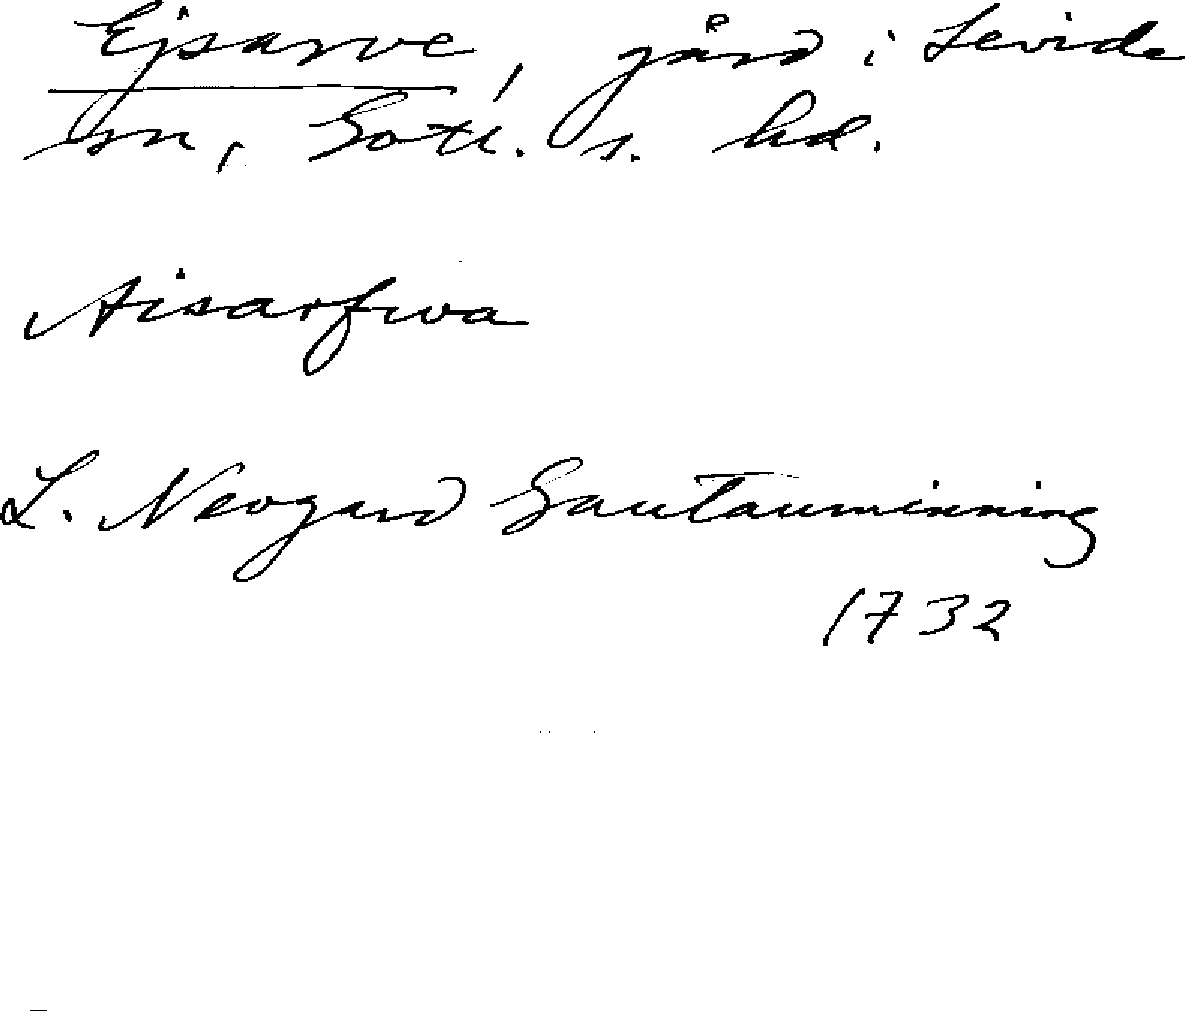 Ejsarve, gård i Levide
sn, Gotl. s. hd.
Aisarfwa
L. Neogard Gautauminning
1732